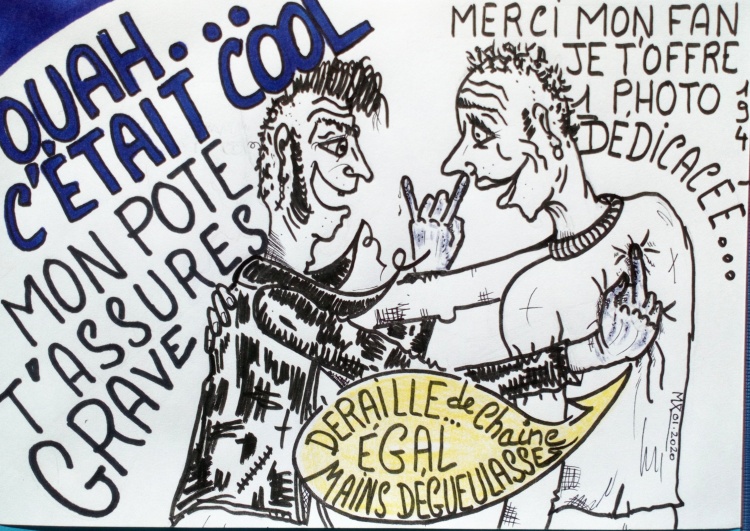 OUAH...
C'ÉTAIT COOL
MON POTE
T'ASSURES
GRAVE
MERCI MON FAN
JE T'OFFRE
1 PHOTO
DÉDICACÉE...
194
DÉRAILLE de chaine
ÉGAL
MAINS DÉGUEULASSES
MX 01.2020